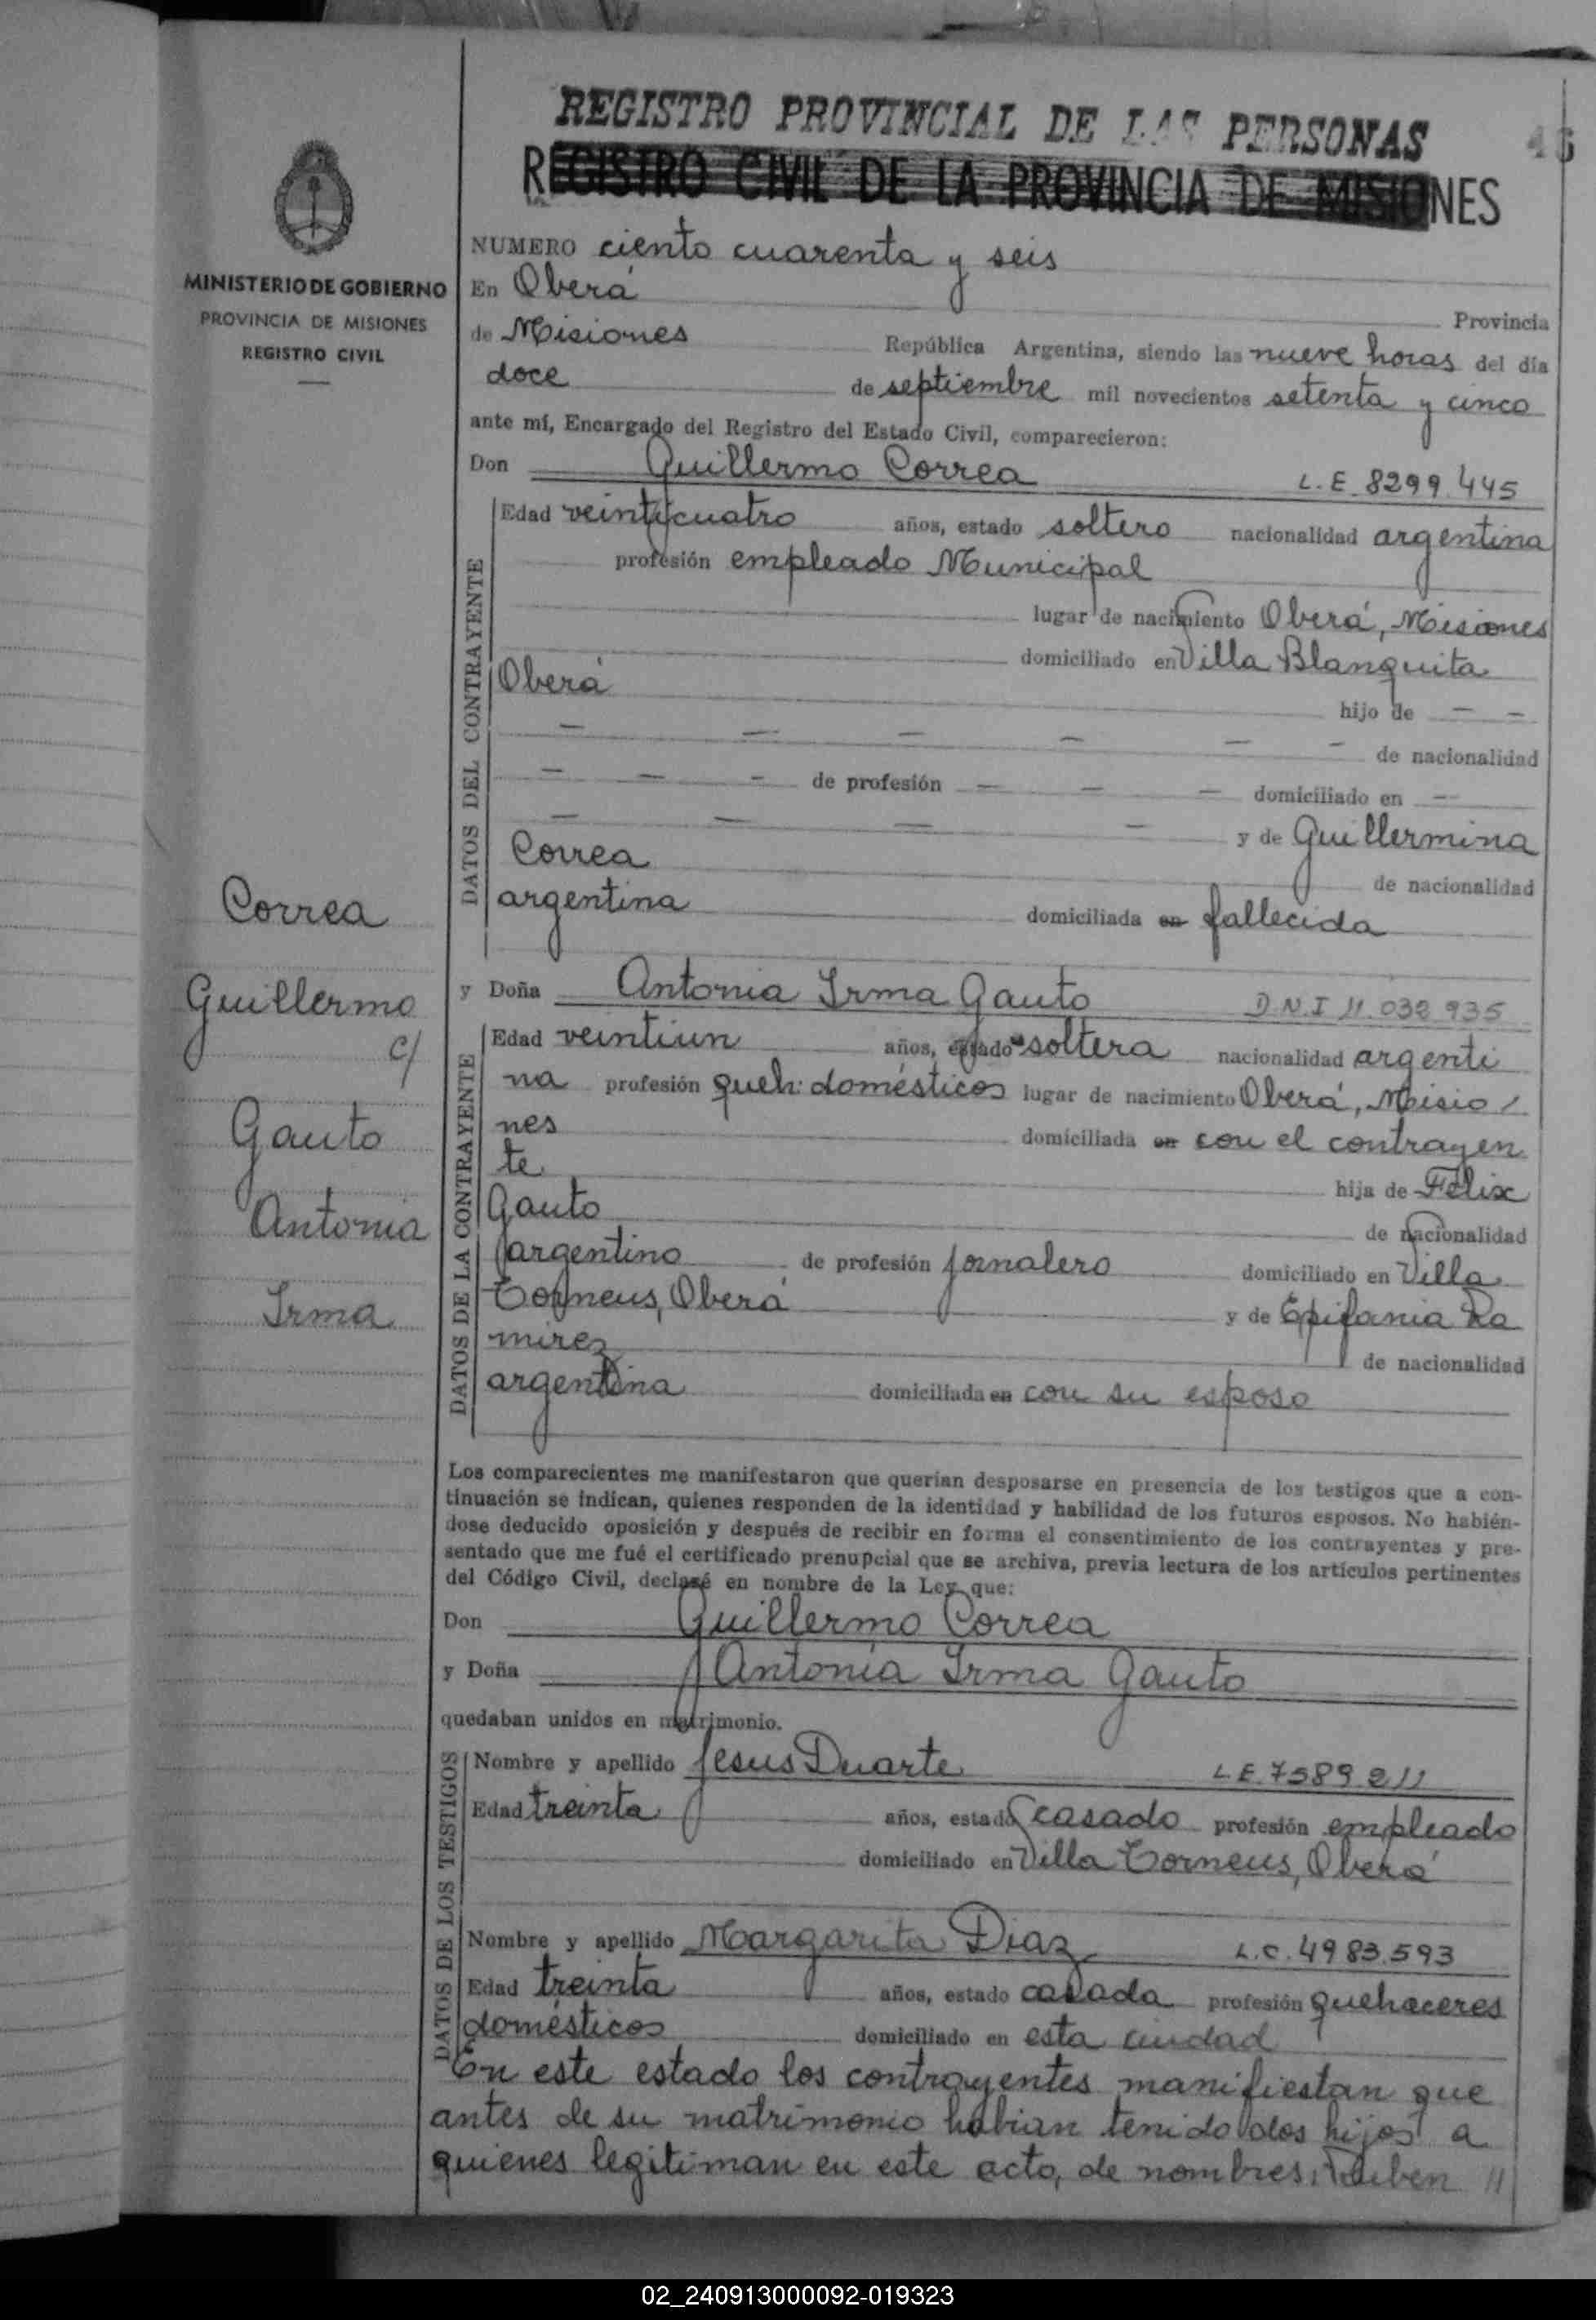 REGISTRO PROVINCIAL DE LAS PERSONAS
46
REGISTRO CIVIL DE LA PROVINCIA DE MISIONES
MINISTERIO DE GOBIERNO
PROVINCIA DE MISIONES
REGISTRO CIVIL
NUMERO ciento cuarenta y seis
En Oberá
Provincia
de Misiones República Argentina, siendo las nueve horas del día
doce de septiembre mil novecientos setenta y cinco
ante mí, Encargado del Registro del Estado Civil, comparecieron:
Don Guillermo Correa L.E. 8299.445
DATOS DEL CONTRAYENTE
Edad veinticuatro años, estado soltero nacionalidad argentina
profesión empleado Municipal
lugar de nacimiento Oberá, Misiones
domiciliado en Villa Blanquita
Oberá
hijo de — —
— — — — — — de nacionalidad
— — — de profesión — — — domiciliado en —
— — — — y de Guillermina
Correa
de nacionalidad
argentina domiciliada en fallecida
Correa
Guillermo
c/
Gauto
Antonia
Irma
y Doña Antonia Irma Gauto D.N.I 11.032 935
DATOS DE LA CONTRAYENTE
Edad veintiun años, estado soltera nacionalidad argenti
na profesión queh: domésticos lugar de nacimiento Oberá, Misio/
nes domiciliada en con el contrayen
te
hija de Felix
Gauto
de nacionalidad
argentino de profesión jornalero domiciliado en Villa
Torneus, Oberá y de Epifania Ra
mirez
de nacionalidad
argentina domiciliada en con su esposo
Los comparecientes me manifestaron que querían desposarse en presencia de los testigos que a con-
tinuación se indican, quienes responden de la identidad y habilidad de los futuros esposos. No habién-
dose deducido oposición y después de recibir en forma el consentimiento de los contrayentes y pre-
sentado que me fué el certificado prenupcial que se archiva, previa lectura de los artículos pertinentes
del Código Civil, declaré en nombre de la Ley que:
Don Guillermo Correa
y Doña Antonia Irma Gauto
quedaban unidos en matrimonio.
DATOS DE LOS TESTIGOS
Nombre y apellido Jesus Duarte L.E. 7589 211
Edad treinta años, estado casado profesión empleado
domiciliado en Villa Torneus, Oberá
Nombre y apellido Margarita Diaz L.C. 4983.593
Edad treinta años, estado casada profesión quehaceres
domésticos domiciliado en esta ciudad
En este estado los contrayentes manifiestan que
antes de su matrimonio habian tenido dos hijos a
quienes legitiman en este acto, de nombres: Ruben //
02_240913000092-019323